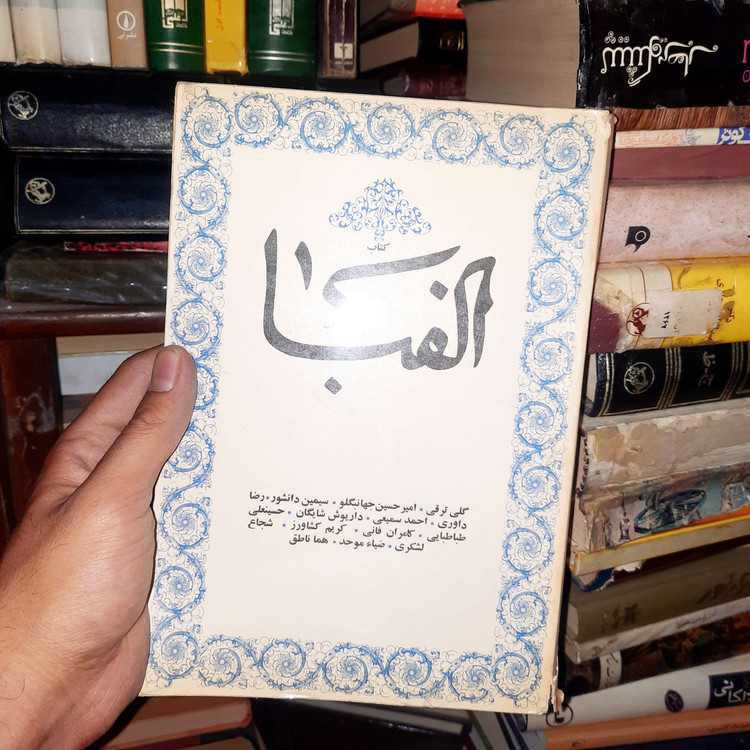 کتاب
الفبا
گلی ترقی • امیرحسین جهانبگلو • سیمین دانشور • رضا
داوری • احمد سمیعی • داریوش شایگان • حسینعلی
طباطبایی • کامران فانی • کریم کشاورز • شجاع
لشکری • ضیاء موحد • هما ناطق